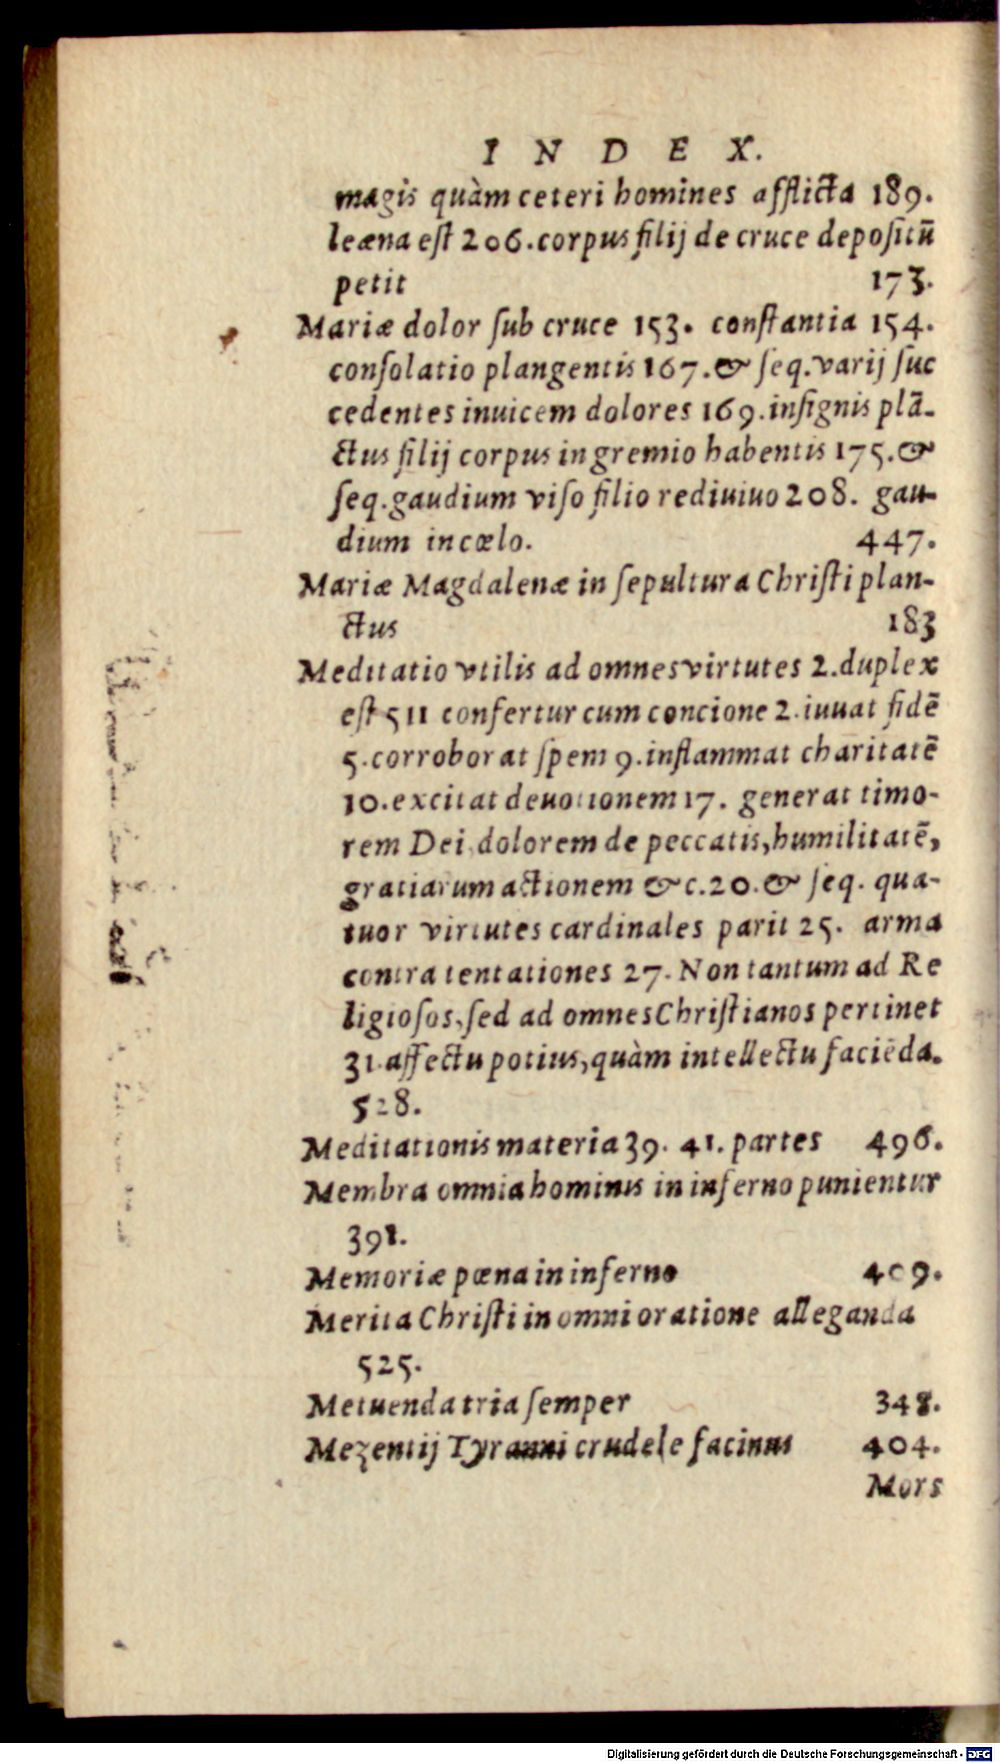 INDEX.
magis quàm ceteri homines afflicta 189.
leæna est 206. corpus filij de cruce depositū
petit 173.
Mariæ dolor sub cruce 153. constantia 154.
consolatio plangentis 167. & seq. varij suc
cedentes inuicem dolores 169. insignis plā-
ctus filij corpus in gremio habentis 175. &
seq. gaudium viso filio rediuiuo 208. gau-
dium in cœlo. 447.
Mariæ Magdalenæ in sepultura Christi plan-
ctus 183
Meditatio vtilis ad omnes virtutes 2. duplex
est 511 confertur cum concione 2. iuuat fidē
5. corroborat spem 9. inflammat charitatē
10. excitat deuotionem 17. generat timo-
rem Dei, dolorem de peccatis, humilitatē,
gratiarum actionem &c. 20. & seq. qua-
tuor virtutes cardinales parit 25. arma
contra tentationes 27. Non tantum ad Re
ligiosos, sed ad omnes Christianos pertinet
31. affectu potius, quàm intellectu faciēda.
528.
Meditationis materia 39. 41. partes 496.
Membra omnia hominis in inferno punientur
391.
Memoriæ pœna in inferno 409.
Merita Christi in omni oratione alleganda
525.
Metuenda tria semper 348.
Mezentij Tyranni crudele facinus 404.
Mors
Digitalisierung gefördert durch die Deutsche Forschungsgemeinschaft - DFG